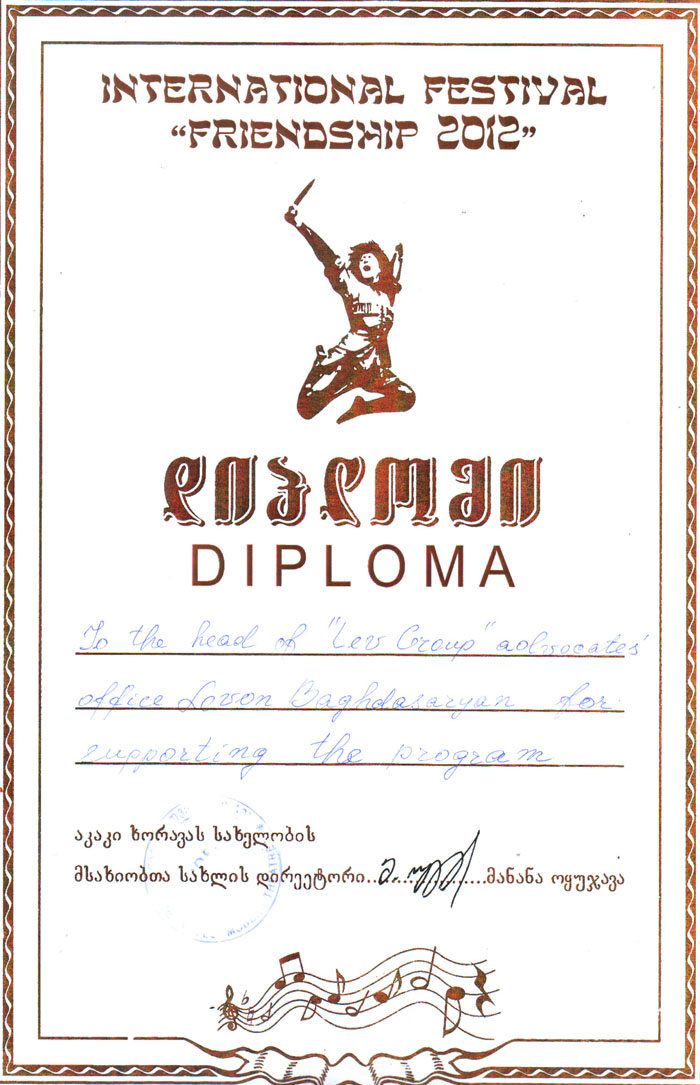 INTERNATIONAL FESTIVAL
“FRIENDSHIP 2012”
დიპლომი
DIPLOMA
To the head of "Lev Group" advocates'
office Levon Baghdasaryan for
supporting the program
აკაკი ხორავას სახელობის
მსახიობთა სახლის დირექტორი.....................მანანა ოყუჯავა